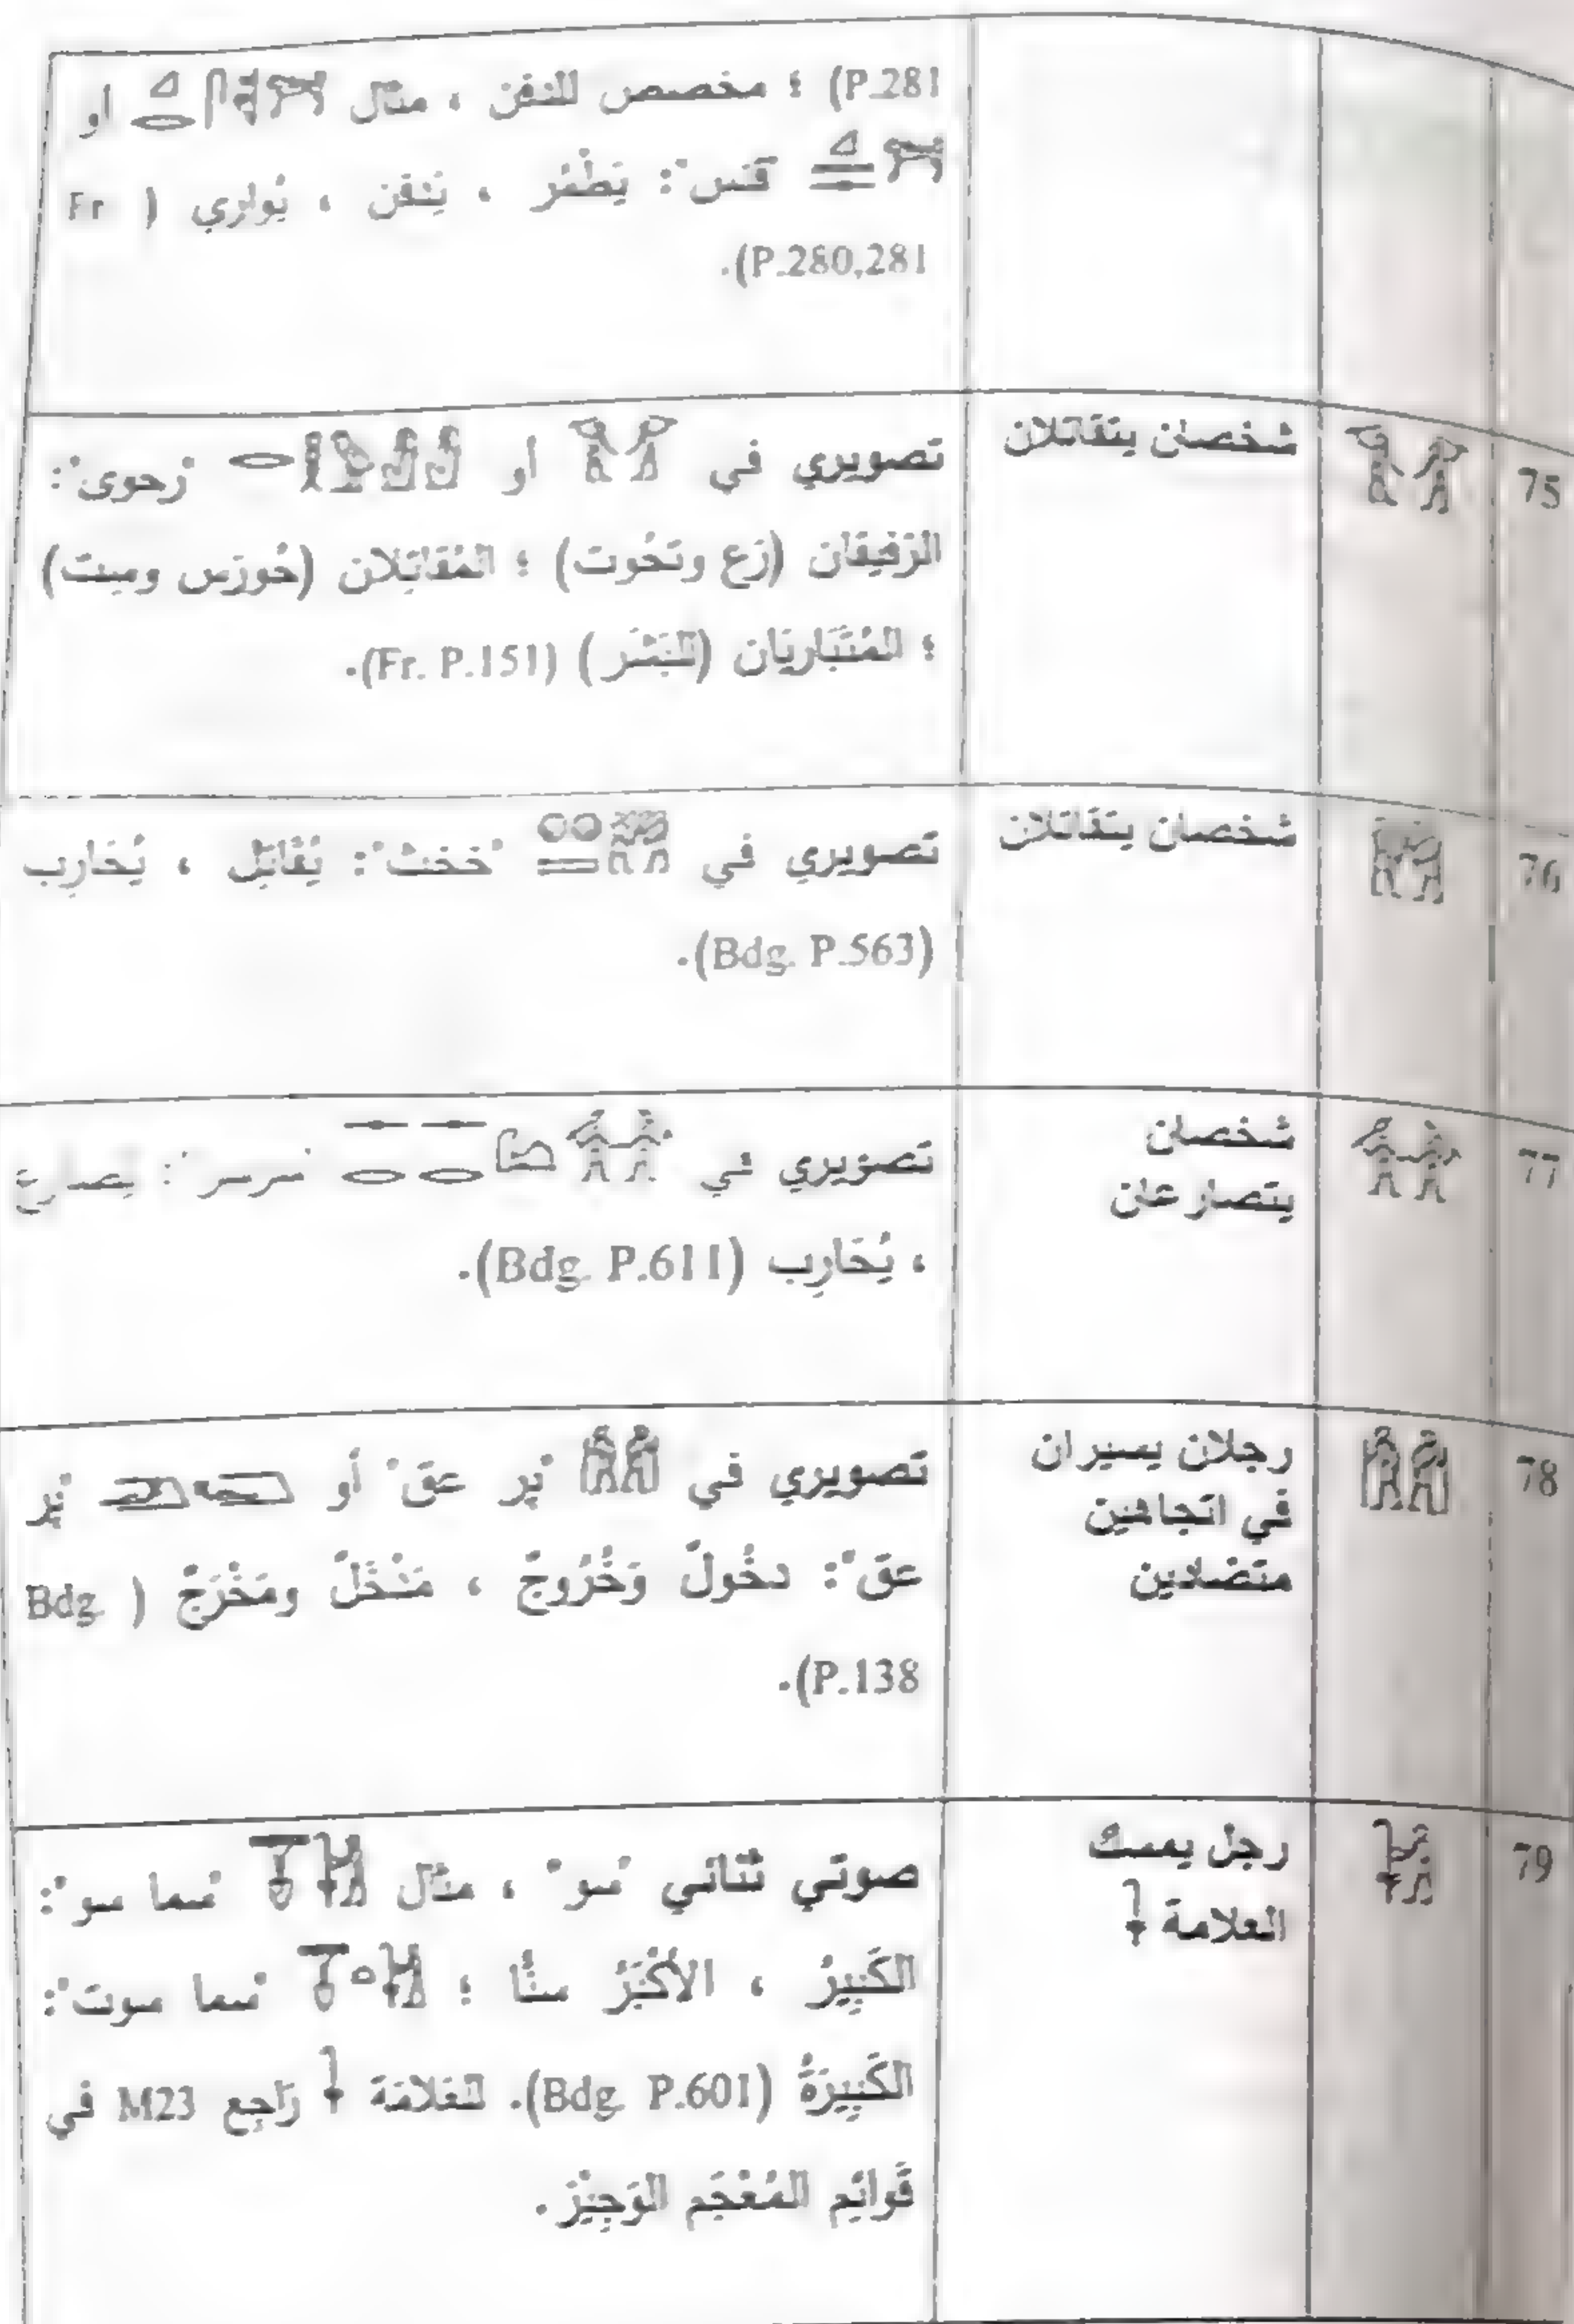 P.281) ؛ مخصص للدفن ، مثال أو
"قنس": يَطْمُر ، يَدْفن ، يُواري ( Fr
P.280,281).
75
شخصان يتقاتلان
تصويري في أو "رحوى":
الرَفيقان (رَع وتحُوت) ؛ المُقَاتِلان (حُورَس وسِت)
؛ المُتَبَاريَان (للبَشَر) (Fr. P.151).
76
شخصان يتقاتلان
تصويري في "خخث": يُقَاتِل ، يُحَارِب
(Bdg. P.563).
77
شخصان
يتصارعان
تصويري في "سرسر": يصارع
، يُحَارِب (Bdg. P.611).
78
رجلان يسيران
في اتجاهين
متضادين
تصويري في "پر عق" أو "پر
عق": دخُولٌ وَخُرُوجٌ ، مَدْخَلٌ ومَخْرَجٌ ( Bdg.
P.138).
79
رجل يمسك
العلامة
صوتي ثنائي "سو" ، مثال "سما سو":
الكَبِيرُ ، الأكْبَرُ سنًّا ؛ "سما سوت":
الكَبِيرَةُ (Bdg. P.601). للعَلامَة رَاجِع M23 في
قَوائِم المُعْجَم الوَجِيْز.